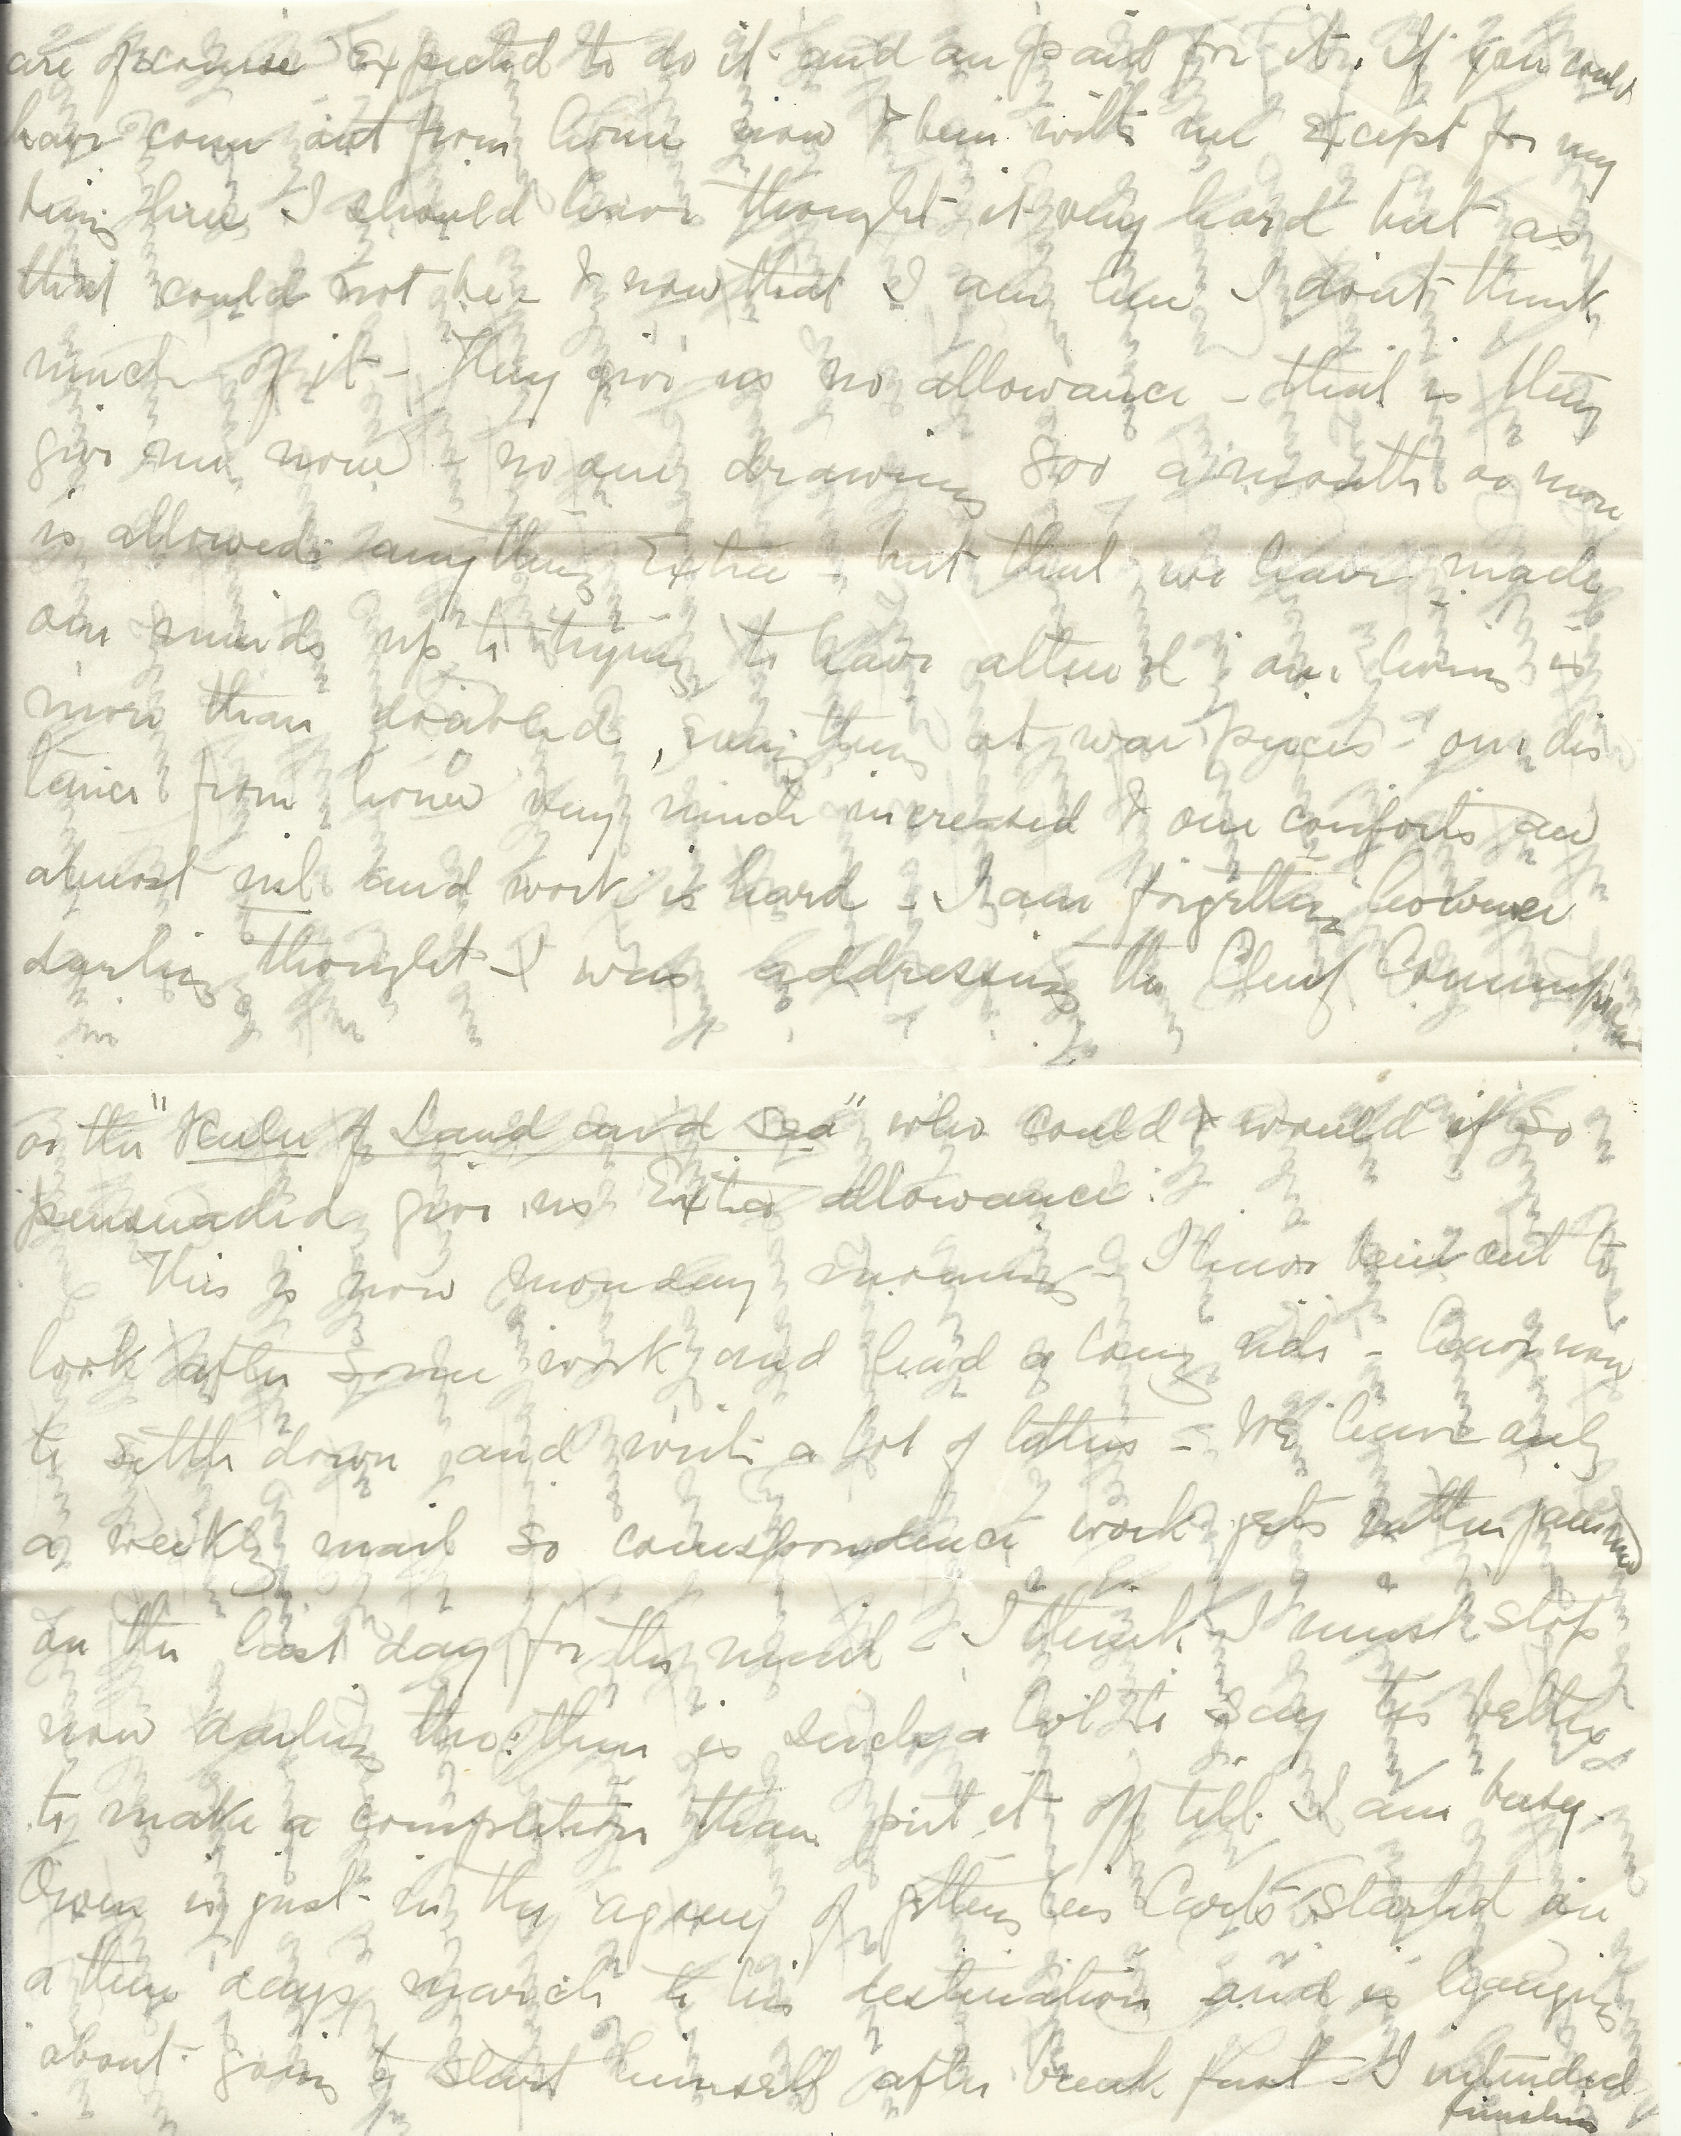 are of course expected to do it and are paid for it. If you could
have come out from home now & been with me except for my
being here I should have thought it very hard but as
that could not be - & now that I am here I don't think
much of it - They give us no allowance - that is they
give me none - no one drawing 800 a month or more
is allowed anything Extra - but that we have made
our minds up to trying to have altered our living is
more than doubled, everything at war prices - our dis
tance from home very much increased & our comforts are
almost nil and work is hard - I am forgetting however
darling thought I was addressing the Chief Commissioner
or the "Ruler of Land and Sea" who could & would if so
persuaded give us Extra allowance.
This is now monday morning - I have been out to
look after some work and had a long ride - have now
to settle down and write a lot of letters - We have only
a weekly mail so correspondence work gets rather jammed
on the last day for the mail - I think I must stop
now darling tho: there is such a lot to say tis better
to make a completion than put it off till I am busy.
Owen is just in the agony of getting his Carts started on
a three days march to his destination and is hanging
about going to start himself after breakfast - I intended
finishing